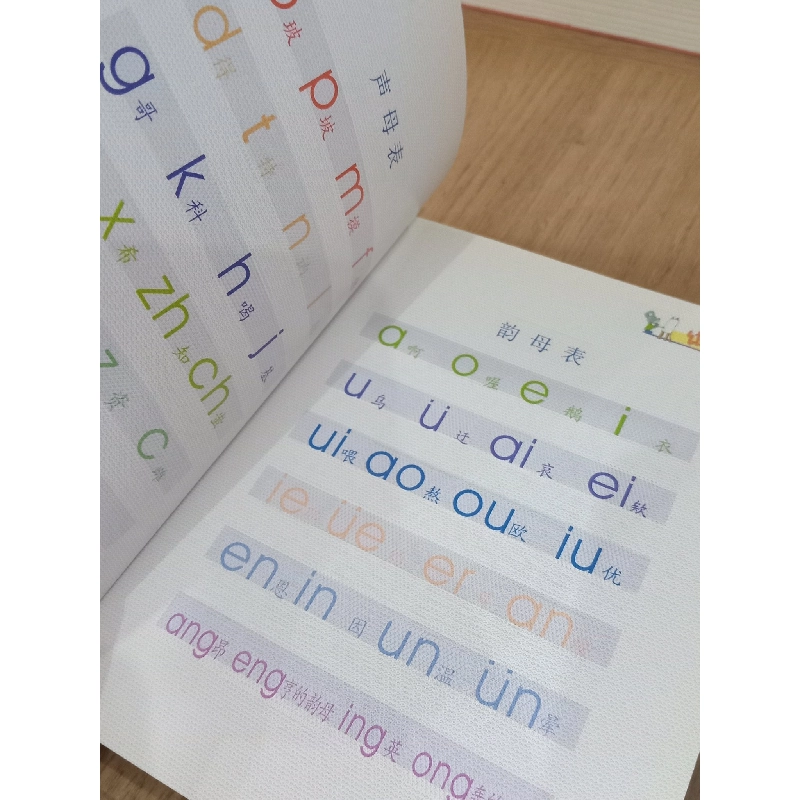 声母表
玻 p 坡 m 摸 f
d 得 t 特 n
g 哥 k 科 h 喝 j
x 希 zh 知 ch
z 资 c
韵母表
a 啊 o 喔 e 鹅 i 衣
u 乌 ü 迂 ai 哀 ei 欸
ui 喂 ao 熬 ou 欧 iu 优
ie üe er an
en 恩 in 因 un 温 ün 晕
ang 昂 eng 亨的韵母 ing 英 ong